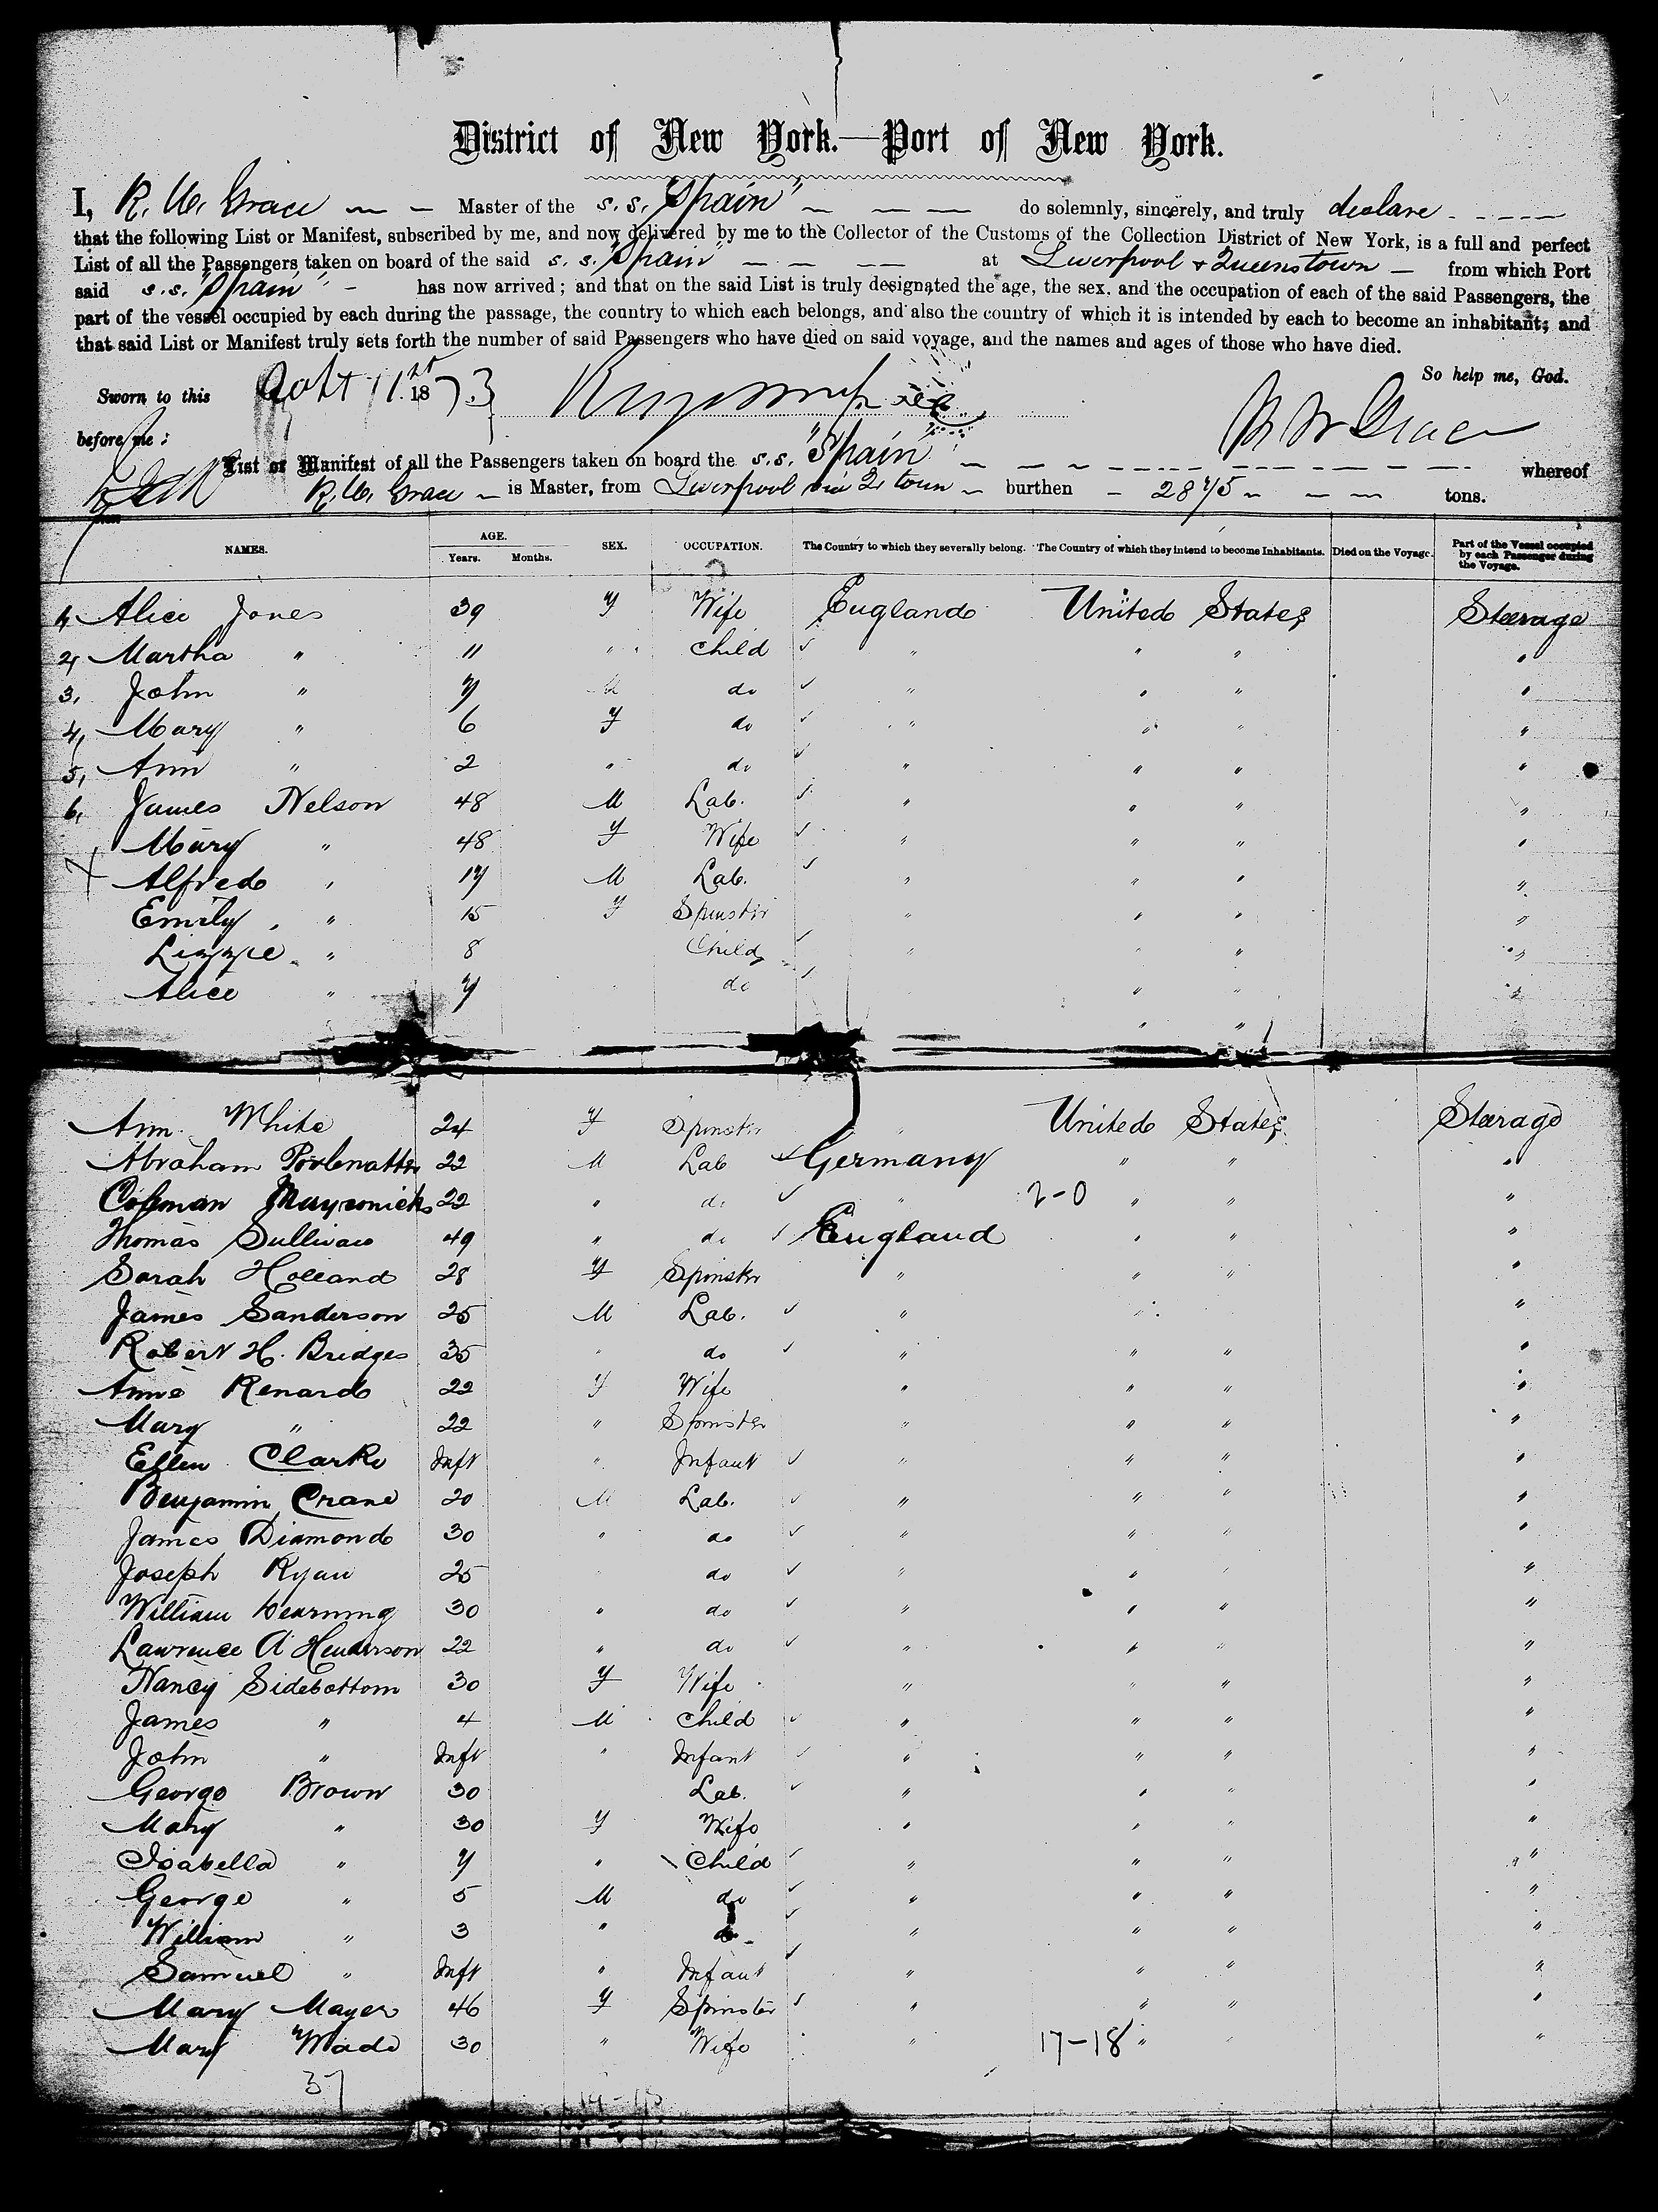 District of New York.—Port of New York.
I, R. W. Grace Master of the s.s. "Spain" do solemnly, sincerely, and truly declare
that the following List or Manifest, subscribed by me, and now delivered by me to the Collector of the Customs of the Collection District of New York, is a full and perfect
List of all the Passengers taken on board of the said s.s. "Spain" at Liverpool & Queenstown from which Port
said s.s. "Spain" has now arrived; and that on the said List is truly designated the age, the sex, and the occupation of each of the said Passengers, the
part of the vessel occupied by each during the passage, the country to which each belongs, and also the country of which it is intended by each to become an inhabitant; and
that said List or Manifest truly sets forth the number of said Passengers who have died on said voyage, and the names and ages of those who have died.
So help me, God.
Sworn to this 1873
before me: R W Grace
List or Manifest of all the Passengers taken on board the s.s. "Spain" whereof
R. W. Grace is Master, from Liverpool via Q. town burthen 2875 tons.
NAMES. AGE. Years. Months. SEX. OCCUPATION. The Country to which they severally belong. The Country of which they intend to become Inhabitants. Died on the Voyage. Part of the Vessel occupied by each Passenger during the Voyage.
1, Alice Jones 39 F Wife England United States Steerage
2, Martha " 11 " Child ✓ " " " "
3, John " 7 M do ✓ " " " "
4, Mary " 6 F do ✓ " " " "
5, Ann " 2 " do ✓ " " " "
6, James Nelson 48 M Lab. ✓ " " " "
Mary " 48 F Wife ✓ " " " "
Alfred " 17 M Lab. ✓ " " " "
Emily " 15 F Spinster " " " "
Lizzie " 8 Child ✓ " " " "
Alice " 7 do ✓ " " "
" "
Ann White 24 F Spinster " United States Steerage
Abraham 22 M Lab ✓ Germany " " "
22 " do ✓ " 2-0 " " "
Thomas Sullivan 49 " do ✓ England " " "
Sarah Holland 28 F Spinster " " " "
James Sanderson 25 M Lab. ✓ " " "
Robert H. Bridges 35 " do ✓ " " " "
Annie Renard 22 F Wife " " " "
Mary " 22 " Spinster " " " "
Ellen Clarke Inft " Infant ✓ " " " "
Benjamin Crane 20 M Lab. ✓ " " " "
James Diamond 30 " do ✓ " " " "
Joseph Ryan 25 do ✓ " " " "
William 30 " do ✓ " " " "
Lawrence A Henderson 22 " do ✓ " " " "
Nancy Sidebottom 30 F Wife " " " "
James " 4 M Child ✓ " " " "
John " Inft " Infant ✓ " " " "
George Brown 30 Lab. ✓ " " " "
Mary " 30 F Wife " " " "
Isabella " 7 " Child ✓ " " " "
George " 5 M do ✓ " " " "
William " 3 " do ✓ " " " "
Samuel " Inft " Infant ✓ " " " "
Mary Mayer 46 F Spinster ✓ " " " "
Mary Wade 30 " Wife " 17-18 " " "
37